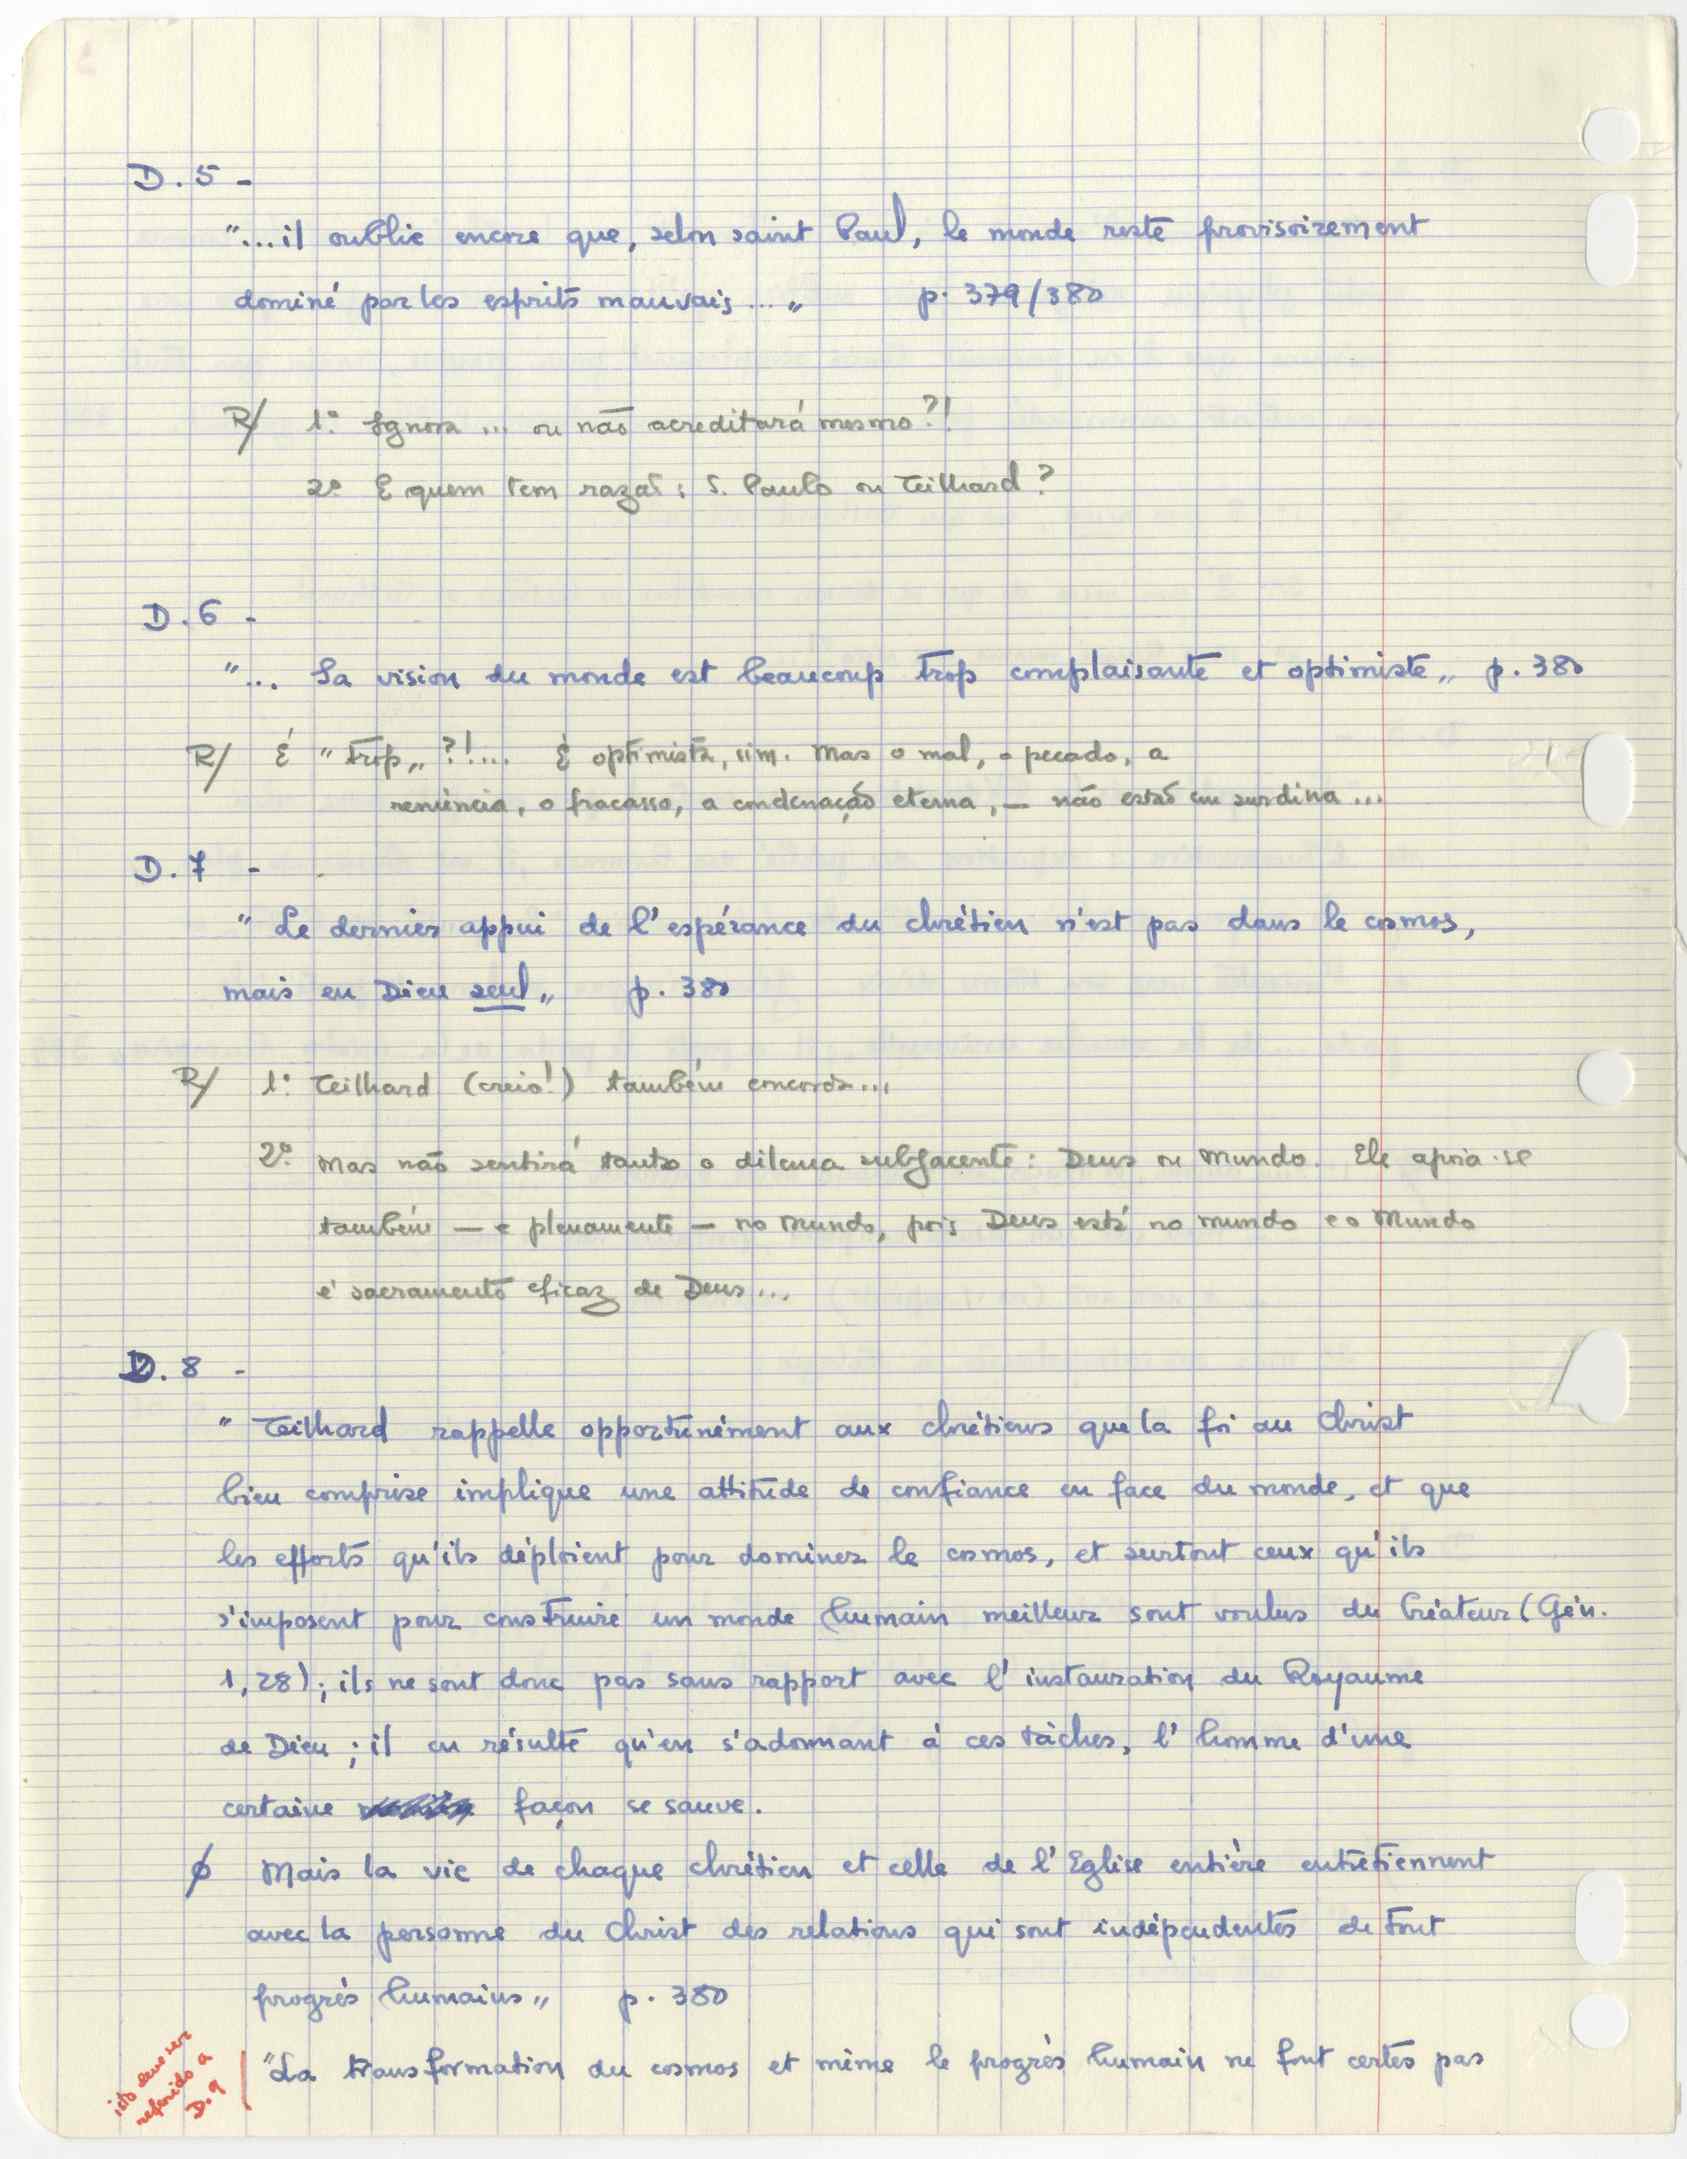 D.5 -
"...il oublie encore que, selon saint Paul, le monde reste provisoirement
dominé par les esprits mauvais..." p. 379/380
R/ 1º Ignora ... ou não acreditará mesmo?!
2º E quem tem razão: S. Paulo ou Teilhard?
D.6 -
"... Sa vision du monde est beaucoup trop complaisante et optimiste" p. 380
R/ É "trop"?!... É optimista, sim. Mas o mal, o pecado, a
renúncia, o fracasso, a condenação eterna, — não estão em surdina...
D.7 -
"Le dernier appui de l'espérance du chrétien n'est pas dans le cosmos,
mais en Dieu seul" p. 380
R/ 1º Teilhard (creio!) também concorda...
2º Mas não sentirá tanto o dilema subjacente: Deus ou Mundo. Ele apoia-se
também — e plenamente — no Mundo, pois Deus está no mundo e o Mundo
é sacramento eficaz de Deus...
D.8 -
"Teilhard rappelle opportunément aux chrétiens que la foi au Christ
bien comprise implique une attitude de confiance en face du monde, et que
les efforts qu'ils déploient pour dominer le cosmos, et surtout ceux qu'ils
s'imposent pour construire un monde humain meilleur sont voulus du Créateur (Gén.
1,28); ils ne sont donc pas sans rapport avec l'instauration du Royaume
de Dieu; il en résulte qu'en s'adonnant à ces tâches, l'homme d'une
certaine façon se sauve.
ϕ Mais la vie de chaque chrétien et celle de l'Eglise entière entretiennent
avec la personne du Christ des relations qui sont indépendentes de tout
progrès humains" p. 380
"La transformation du cosmos et même le progrès humain ne font certes pas
isto deve ser
referido a
D.9